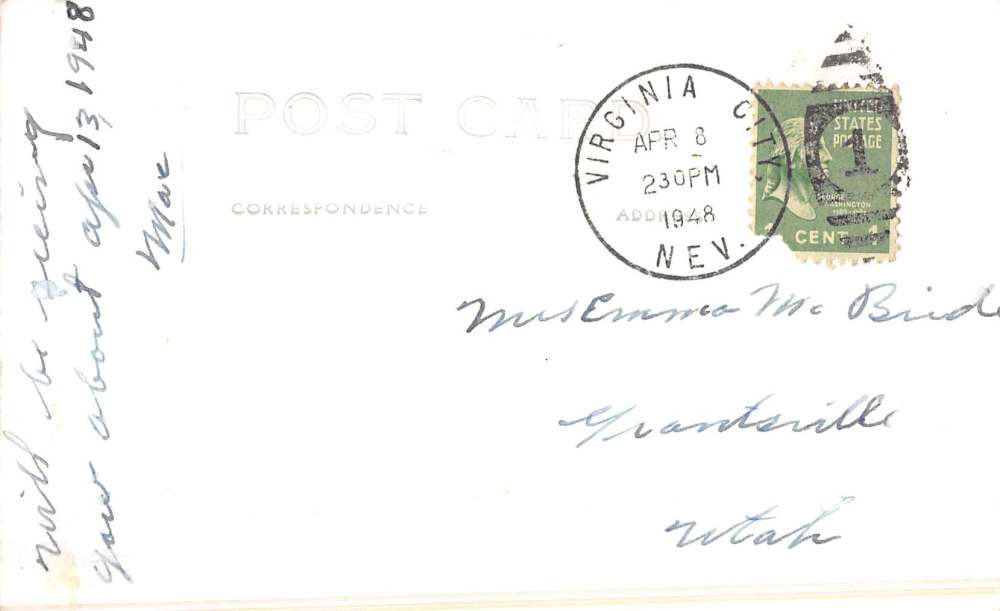 POST CARD
CORRESPONDENCE
ADDRESS
VIRGINIA CITY,
APR 8
230PM
1948
NEV.
UNITED
STATES
POSTAGE
1
GEORGE
WASHINGTON
1 CENT 1
will be seeing
you about apr 13, 1948
Mac
Mrs Emma Mc Bride
Grantsville
Utah